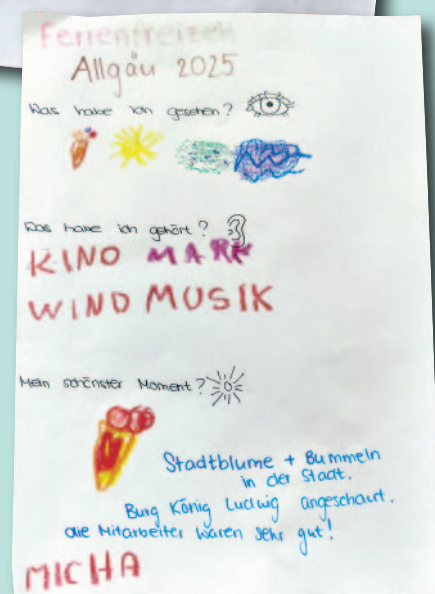 Ferienfreizeit
Allgäu 2025
Was habe ich gesehen?
Was habe ich gehört?
KINO MARK
WIND MUSIK
Mein schönster Moment?
Stadtblume + Bummeln
in der Stadt.
Burg König Ludwig angeschaut.
die Mitarbeiter waren sehr gut!
MICHA